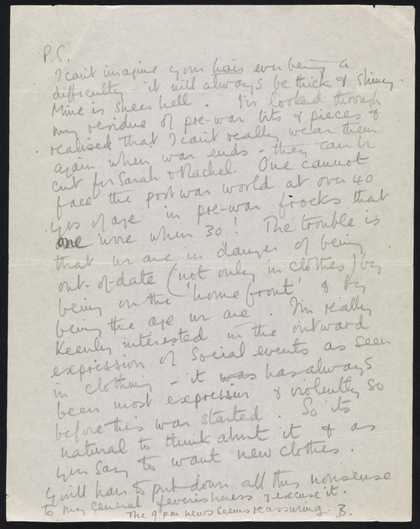 P.S.
I can't imagine your hair ever being a
difficulty it will always be thick & shiney.
Mine is sheer hell. I've looked through
my residue of pre-war bits & pieces &
realised that I can't really wear them
again when war ends - they can be
cut for Sarah & Rachel. One cannot
face the post war world at over 40
yrs of age in pre-war frocks that
one wore when 30! The trouble is
that we are in danger of being
out-of-date (not only in clothes) by
being on the 'home front' & by
being the age we are. I'm really
keenly interested in the outward
expression of social events as seen
in clothing - it was has always
been most expressive & violently so
before this war started. So its
natural to think about it & as
you say to want new clothes.
You'll have to put down all this nonsense
to my general feverishness & excuse it.
The 9 pm news seems reassuring. B.